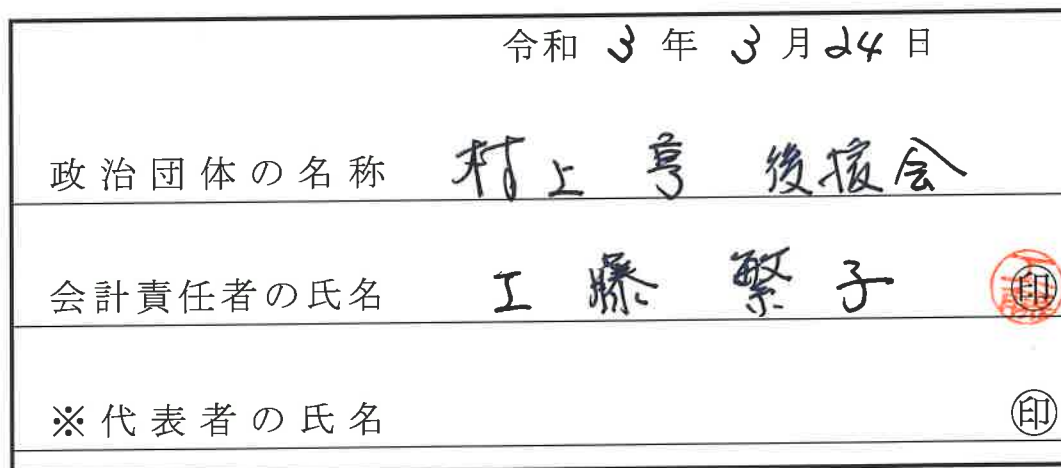 令和 3 年 3 月 24 日
政治団体の名称 村上 亨 後援会
会計責任者の氏名 工藤 繁子 印
※代表者の氏名 印